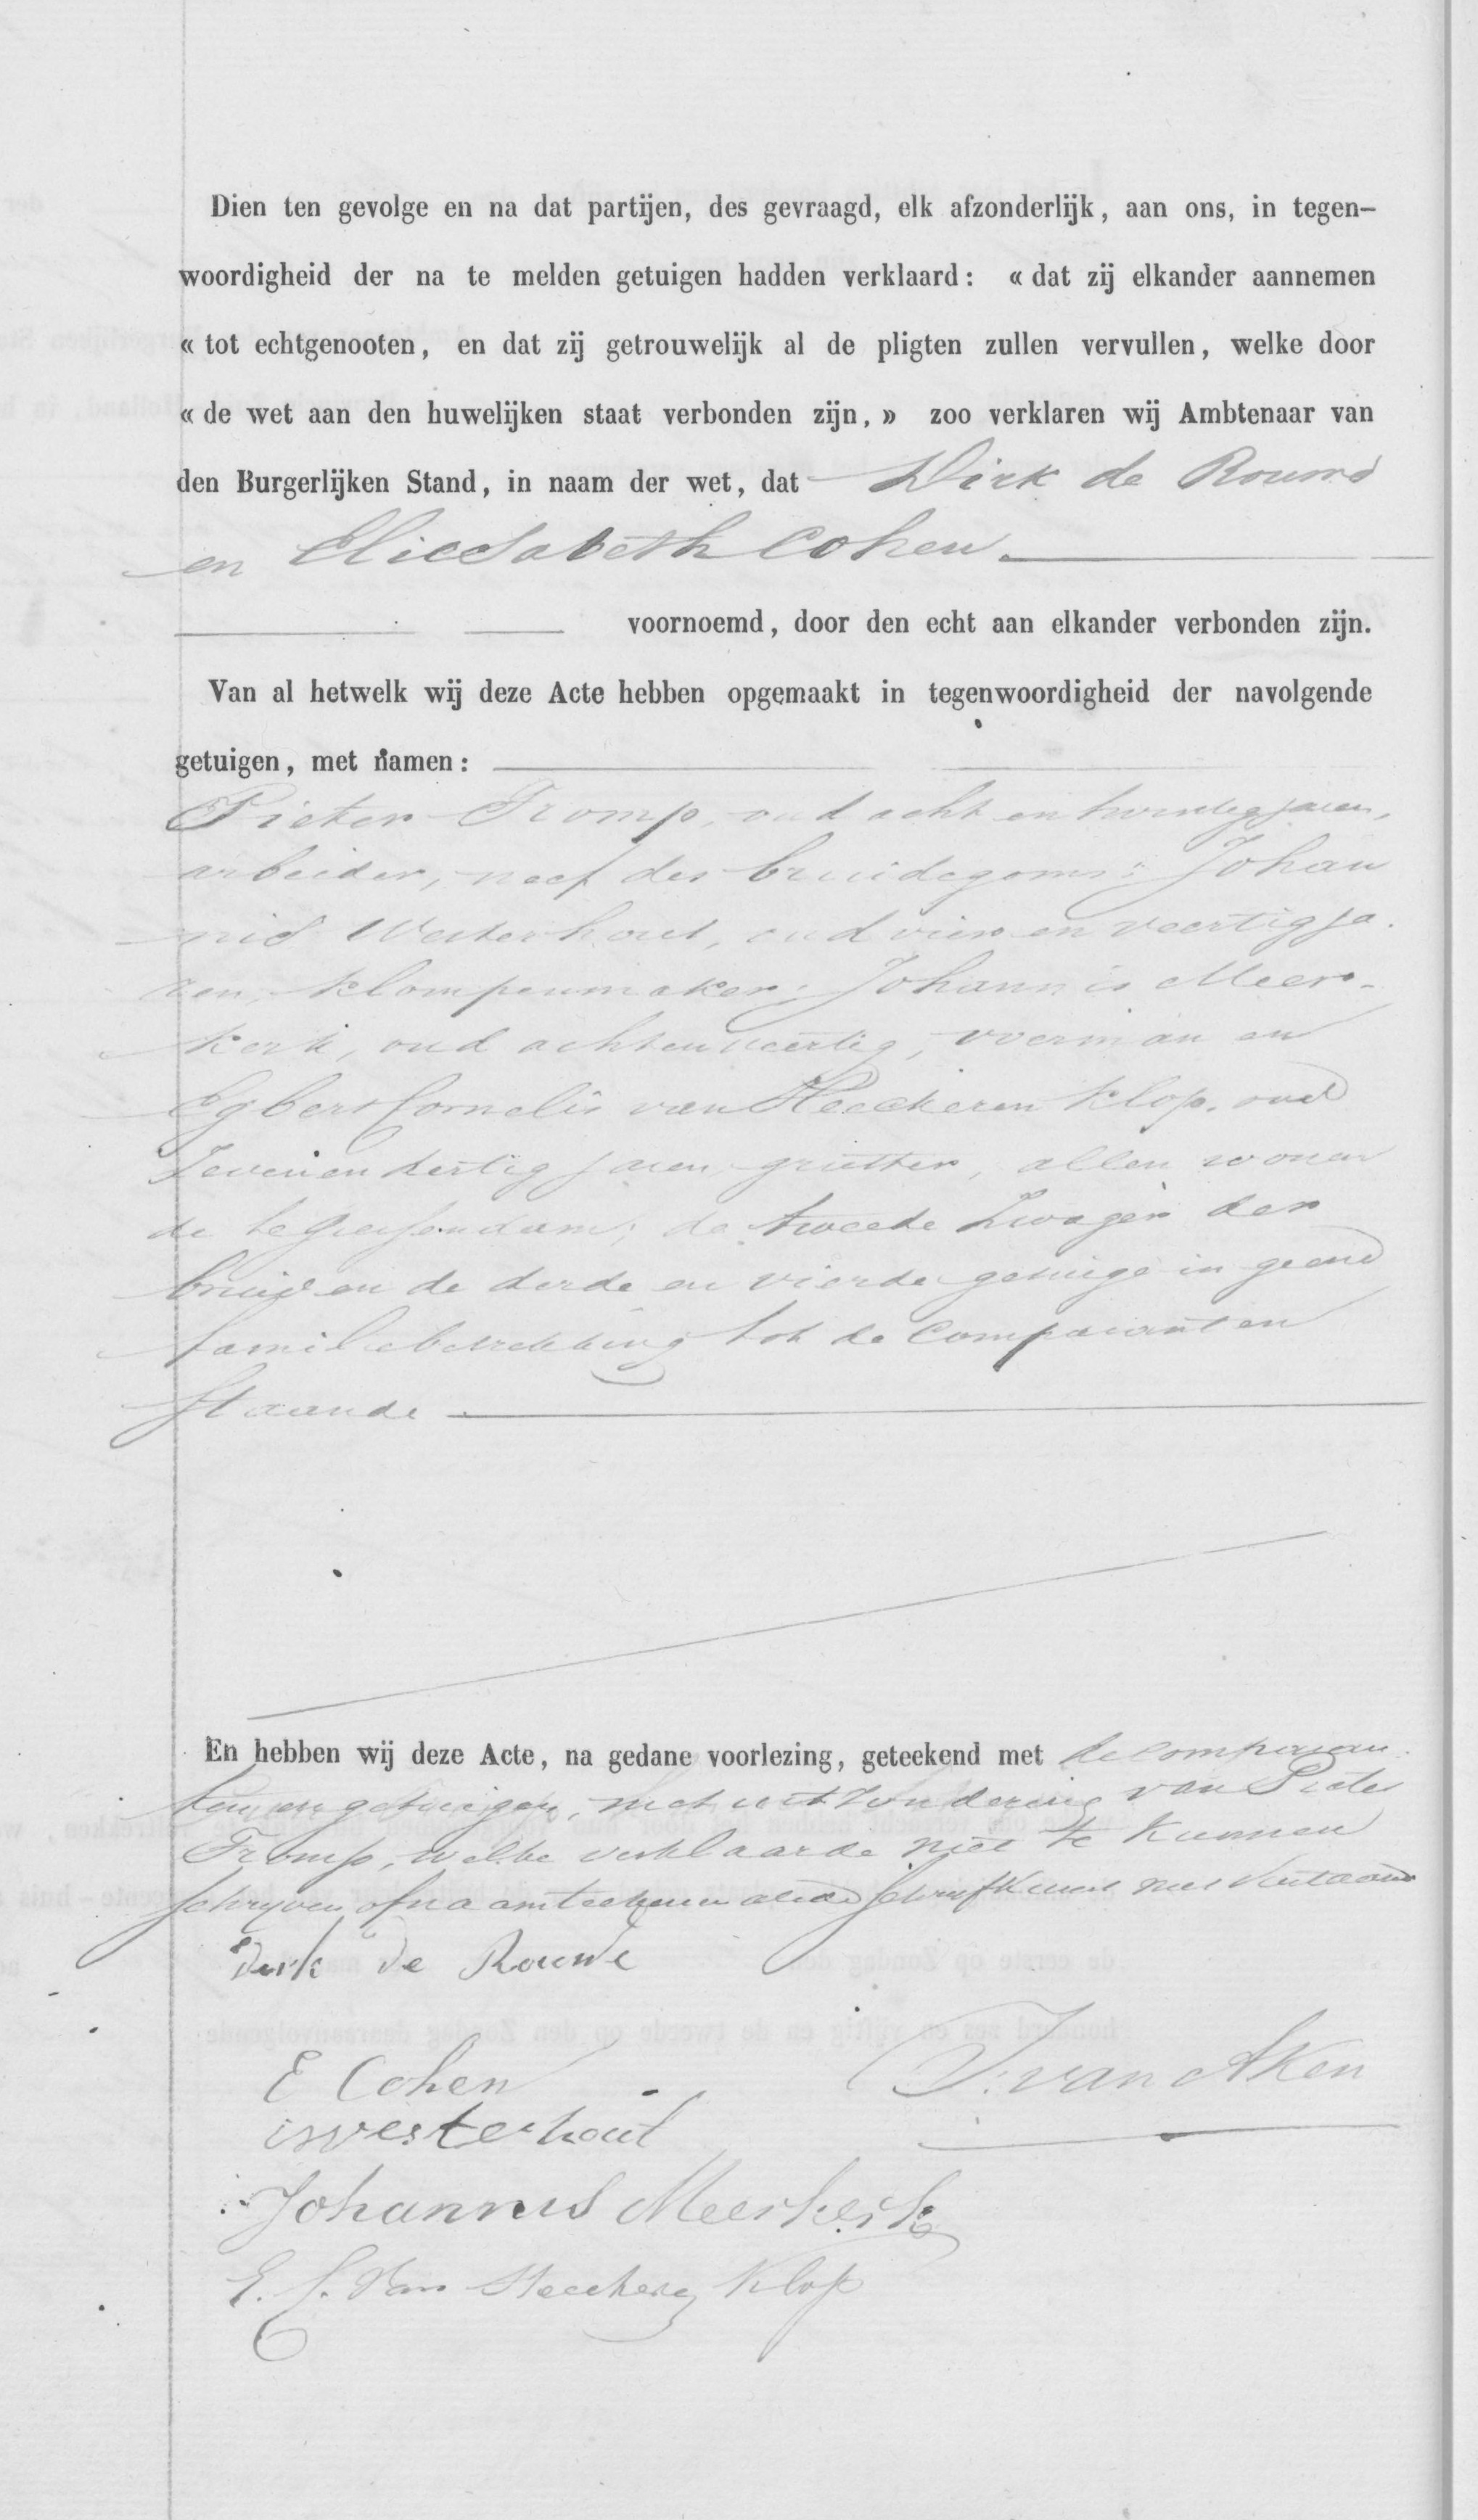 Dien ten gevolge en na dat partijen, des gevraagd, elk afzonderlijk, aan ons, in tegen-
woordigheid der na te melden getuigen hadden verklaard: « dat zij elkander aannemen
« tot echtgenooten, en dat zij getrouwelijk al de pligten zullen vervullen, welke door
« de wet aan den huwelijken staat verbonden zijn, » zoo verklaren wij Ambtenaar van
den Burgerlijken Stand, in naam der wet, dat Dirk de Rouwe
en Eliesabeth Cohen
voornoemd, door den echt aan elkander verbonden zijn.
Van al hetwelk wij deze Acte hebben opgemaakt in tegenwoordigheid der navolgende
getuigen, met namen:
Pieter Tromp, oud acht en twintig jaren,
arbeider, neef des bruidegoms; Johan
nis Westerhout, oud vier en veertig ja
ren, klompenmaker; Johannis Meer-
kerk, oud achtenveertig, voerman en
Egbert Cornelis van Heeckeren Klop, oud
Zevenendertig jaren, grutter, allen wonen
de te Giessendam; de tweede Zwager der
bruid en de derde en vierde getuige in geene
familiebetrekking tot de Comparanten
staande
En hebben wij deze Acte, na gedane voorlezing, geteekend met de comparan
ten en getuigen, met uitzondering van Pieter
Tromp, welke verklaarde niet te kunnen
schrijven of naamteekenen als de schrijfkunst niet verstaande
Dirk de Rouwe
E Cohen
T. van Aken
i westerhout
Johannis Meerkerk
E. C. van Heeckeren Klop